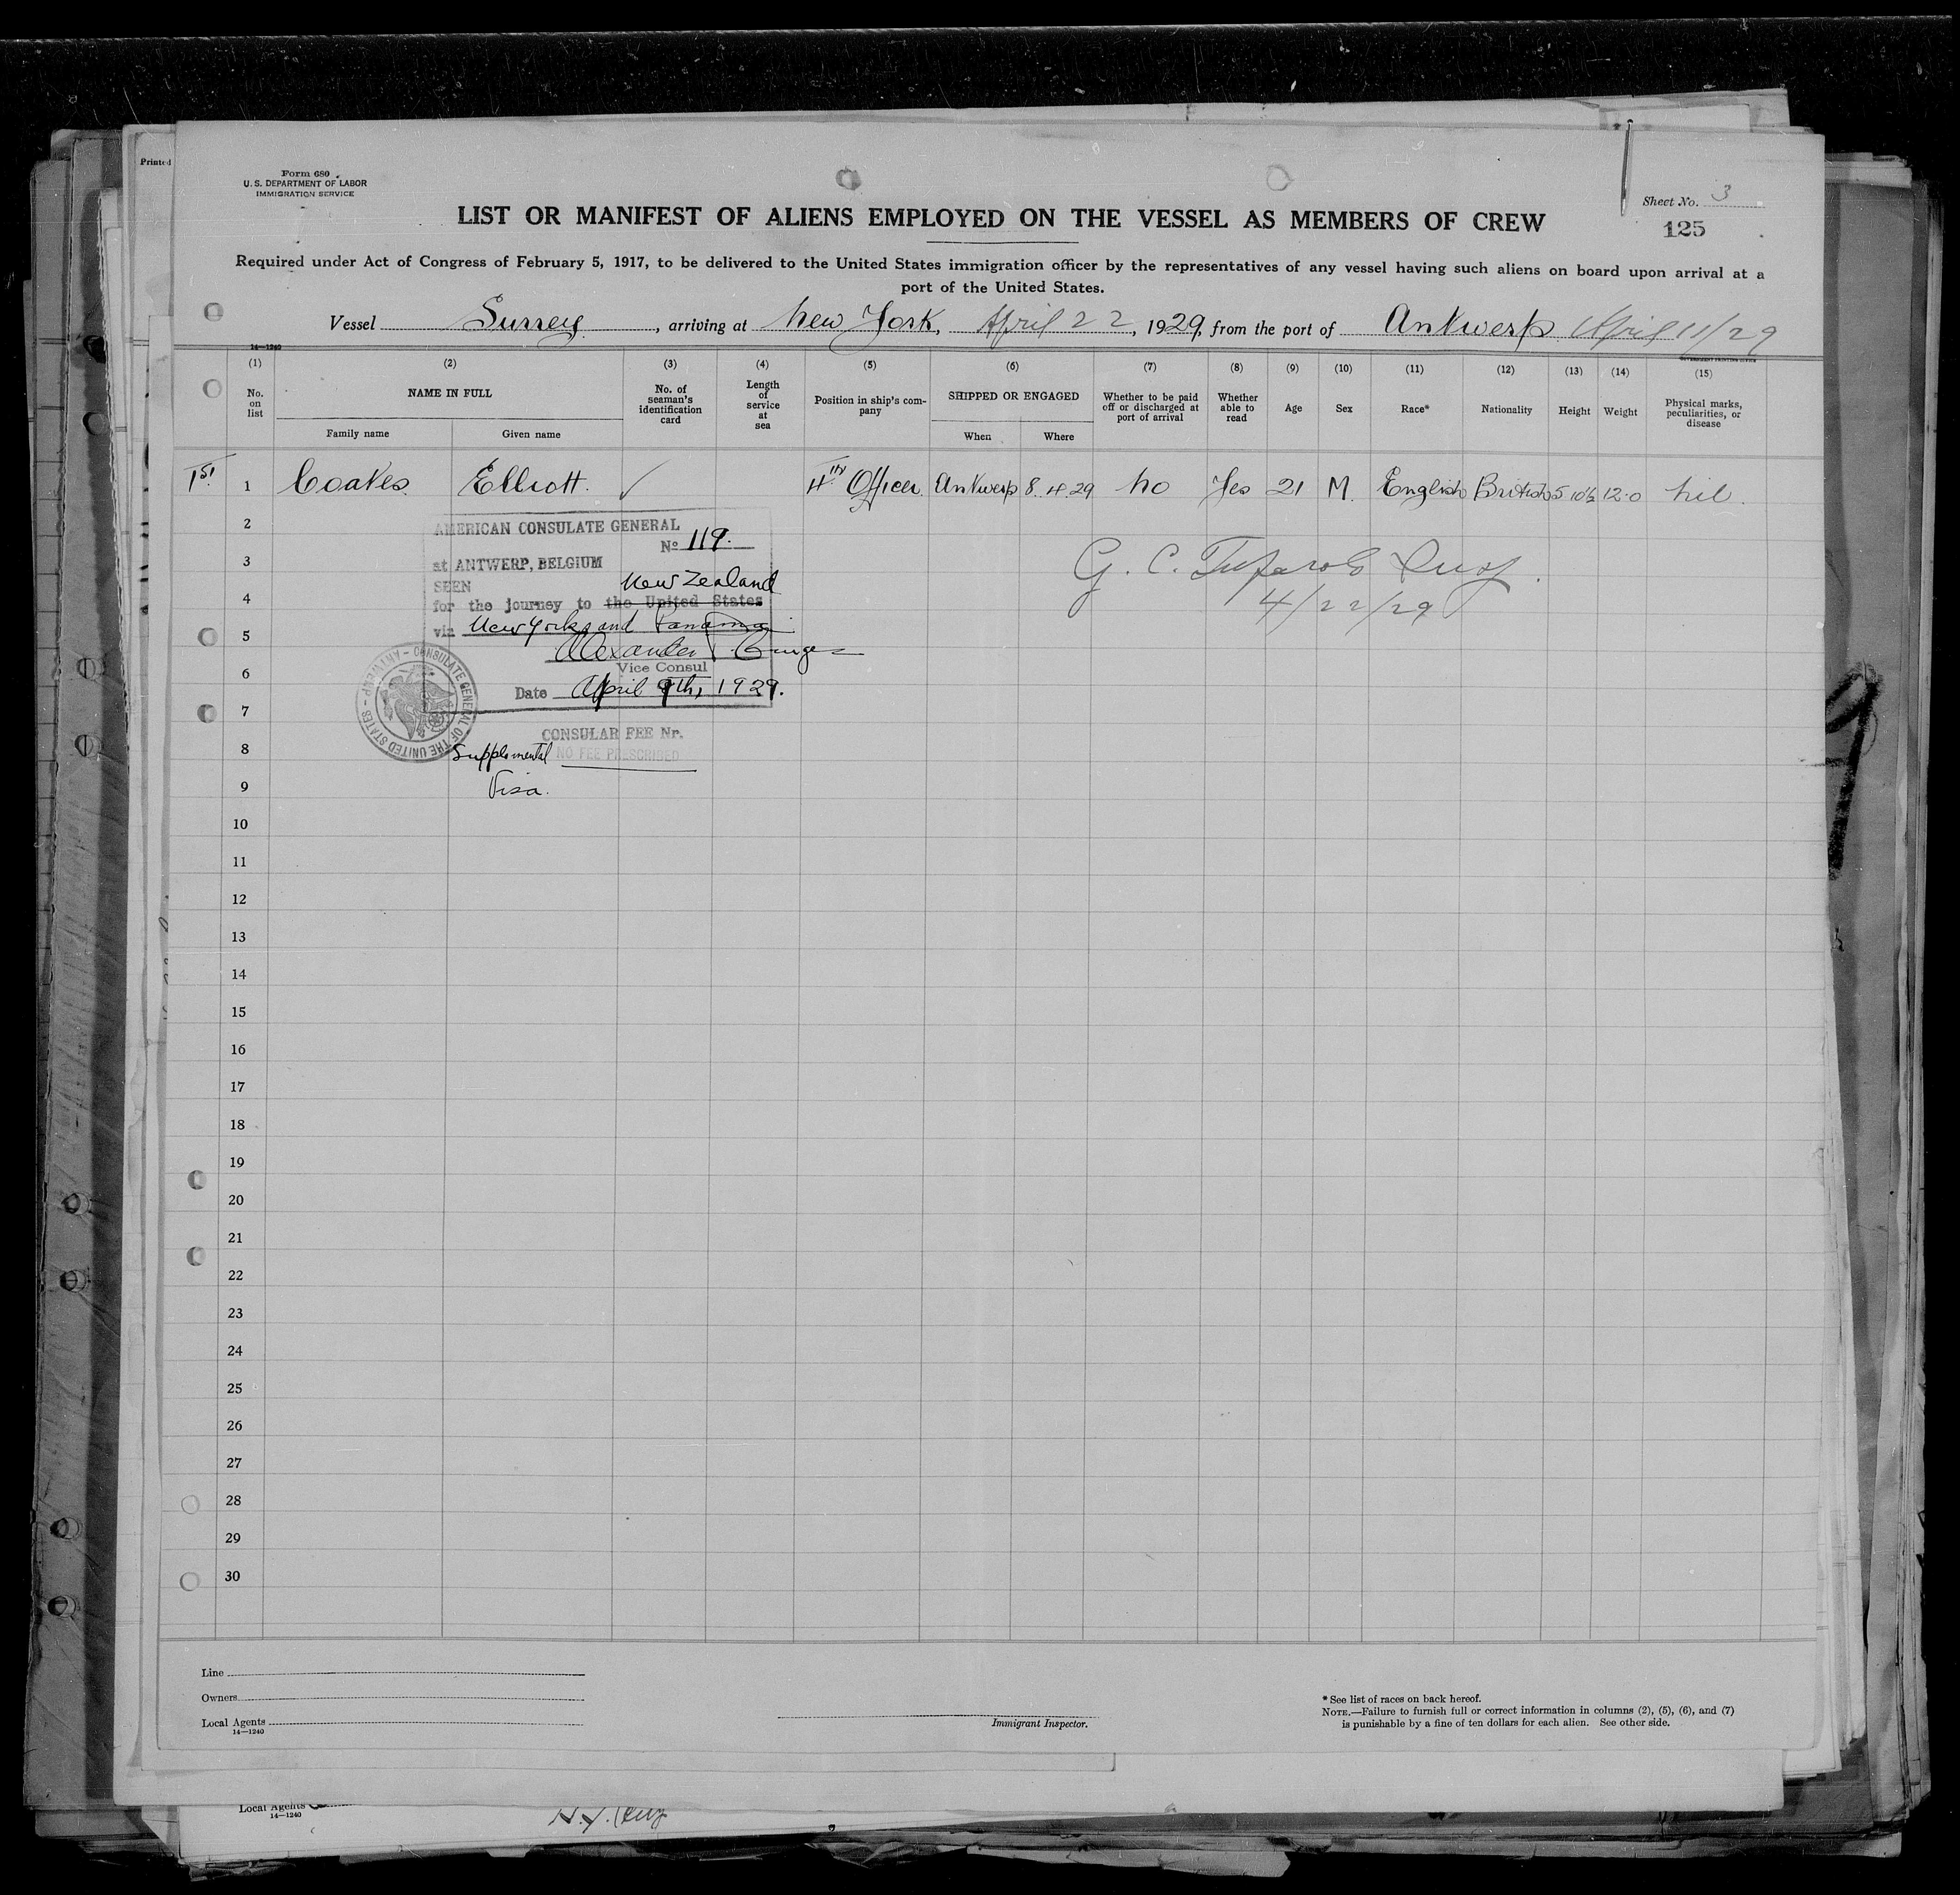 Printed
Form 680
U. S. DEPARTMENT OF LABOR
IMMIGRATION SERVICE
Sheet No. 3
125
LIST OR MANIFEST OF ALIENS EMPLOYED ON THE VESSEL AS MEMBERS OF CREW
Required under Act of Congress of February 5, 1917, to be delivered to the United States immigration officer by the representatives of any vessel having such aliens on board upon arrival at a
port of the United States.
Vessel Surrey, arriving at New York, April 22, 1929, from the port of Antwerp April 11/29
14—1240
GOVERNMENT PRINTING OFFICE
(1) (2) (3) (4) (5) (6) (7) (8) (9) (10) (11) (12) (13) (14) (15)
No. on list
NAME IN FULL
Family name
Given name
No. of seaman's identification card
Length of service at sea
Position in ship's company
SHIPPED OR ENGAGED
When
Where
Whether to be paid off or discharged at port of arrival
Whether able to read
Age
Sex
Race*
Nationality
Height
Weight
Physical marks, peculiarities, or disease
1st 1 Coates Elliott ✓ 4th Officer Antwerp 8.4.29 No Yes 21 M. English British 5 10½ 12-0 Nil.
2
3
4
5
6
7
8
9
10
11
12
13
14
15
16
17
18
19
20
21
22
23
24
25
26
27
28
29
30
AMERICAN CONSULATE GENERAL
No 119.
at ANTWERP, BELGIUM
SEEN New Zealand
for the journey to the United States
via New York and Panama
Alexander P.
Vice Consul
Date April 9th, 1929.
CONSULATE GENERAL OF THE UNITED STATES - ANTWERP -
CONSULAR FEE Nr.
NO FEE PRESCRIBED
Supplemental
Visa.
G. C.
4/22/29
Line
Owners
Local Agents
14—1240
Immigrant Inspector.
* See list of races on back hereof.
NOTE.—Failure to furnish full or correct information in columns (2), (5), (6), and (7)
is punishable by a fine of ten dollars for each alien. See other side.
Local Agents
14—1240